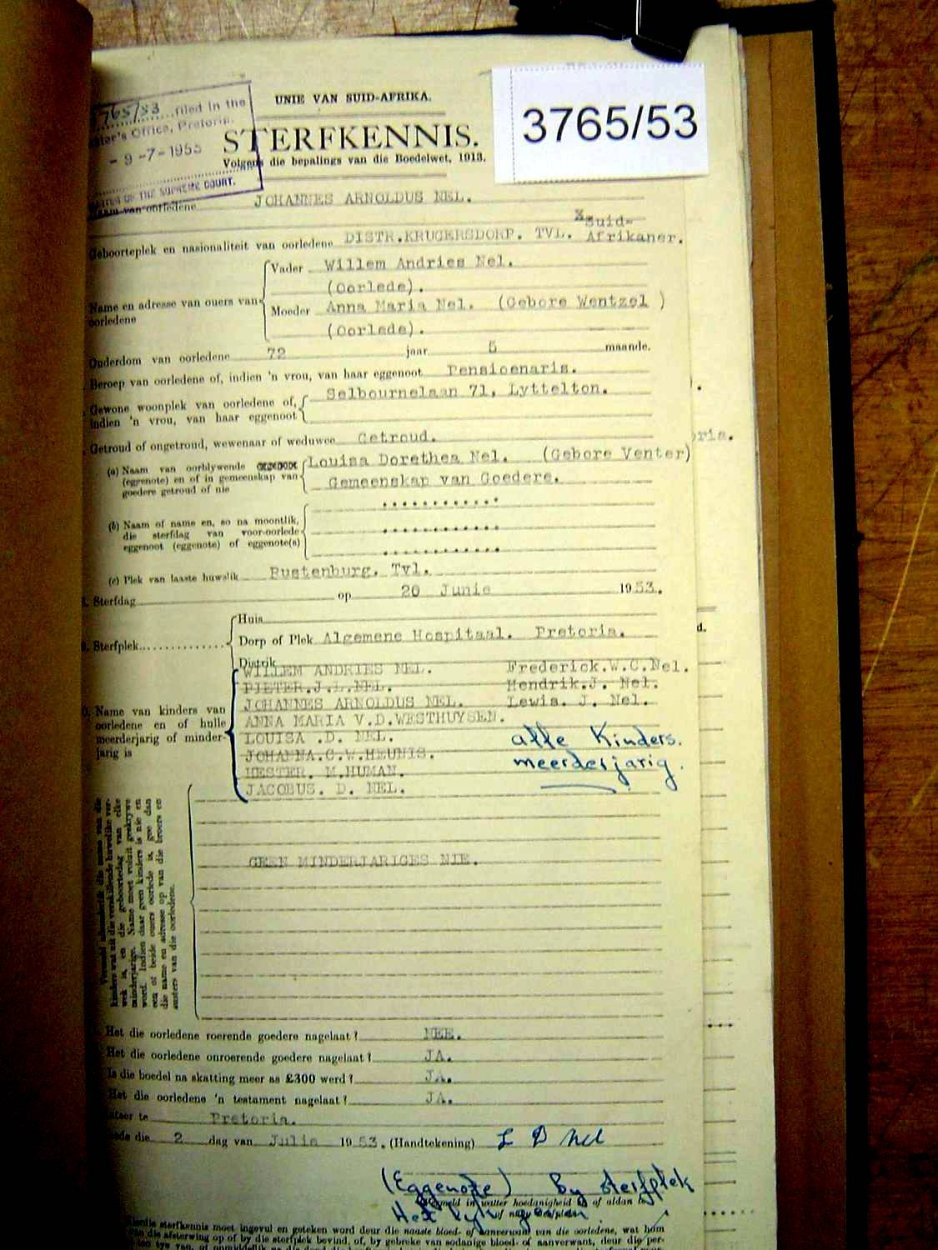 3765/53
3765/53 filed in the
Master's Office, Pretoria.
- 9 -7- 1953
MASTER OF THE SUPREME COURT.
UNIE VAN SUID-AFRIKA.
STERFKENNIS.
Volgens die bepalings van die Boedelwet, 1913.
Naam van oorledene JOHANNES ARNOLDUS NEL.
Geboorteplek en nasionaliteit van oorledene DISTR.KRUGERSDORP. TVL. Suid-Afrikaner.
Name en adresse van ouers van oorledene
Vader Willem Andries Nel.
(Oorlede).
Moeder Anna Maria Nel. (Gebore Wentzel )
(Oorlede).
Ouderdom van oorledene 72 jaar 5 maande.
Beroep van oorledene of, indien 'n vrou, van haar eggenoot Pensioenaris.
Gewone woonplek van oorledene of, indien 'n vrou, van haar eggenoot Selbournelaan 71, Lyttelton.
Getroud of ongetroud, wewenaar of weduwee Getroud.
(a) Naam van oorblywende (eggenote) en of in gemeenskap van goedere getroud of nie
Louisa Dorethea Nel. (Gebore Venter)
Gemeenskap van Goedere.
(b) Naam of name en, so na moontlik, die sterfdag van voor-oorlede eggenoot (eggenote) of eggenote(s)
(c) Plek van laaste huwelik Rustenburg. Tvl.
Sterfdag op 20 Junie 1953.
Sterfplek
Huis
Dorp of Plek Algemene Hospitaal. Pretoria.
Distrik
Name van kinders van oorledene en of hulle meerderjarig of minderjarig is
WILLEM ANDRIES NEL. Frederick.W.C.Nel.
PIETER.J.L.NEL. Hendrik.J. Nel.
JOHANNES ARNOLDUS NEL. Lewis. J. Nel.
ANNA MARIA V.D.WESTHUYSEN.
LOUISA .D. NEL. alle Kinders.
JOHANNA.C.W.HEUNIS. meerderjarig.
HESTER. M.HUMAN.
JACOBUS. D. NEL.
GEEN MINDERJARIGES NIE.
Het die oorledene roerende goedere nagelaat? NEE.
Het die oorledene onroerende goedere nagelaat? JA.
Is die boedel na skatting meer as £300 werd? JA.
Het die oorledene 'n testament nagelaat? JA.
te Pretoria.
die 2 dag van Julie 1953. (Handtekening) L D Nel
(Eggenote) By sterfplek
sterfkennis moet ingevul en geteken word deur die naaste bloed- of aanverwant van die oorledene, wat hom
die afsterwing op of by die sterfplek bevind, of, by gebreke van sodanige bloed- of aanverwant, deur die per-